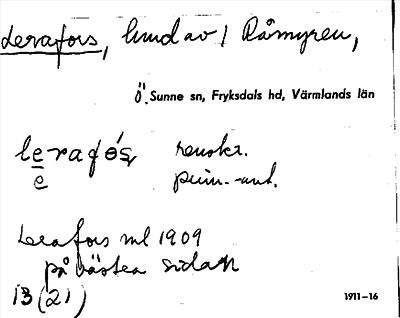 Lerafors, hmd av / Råmyren,
Ö. Sunne sn, Fryksdals hd, Värmlands län
lerafós, renskr.
e prim.-ant.
Lerafors ml 1909
på västra sidan
13 (21)
1911–16